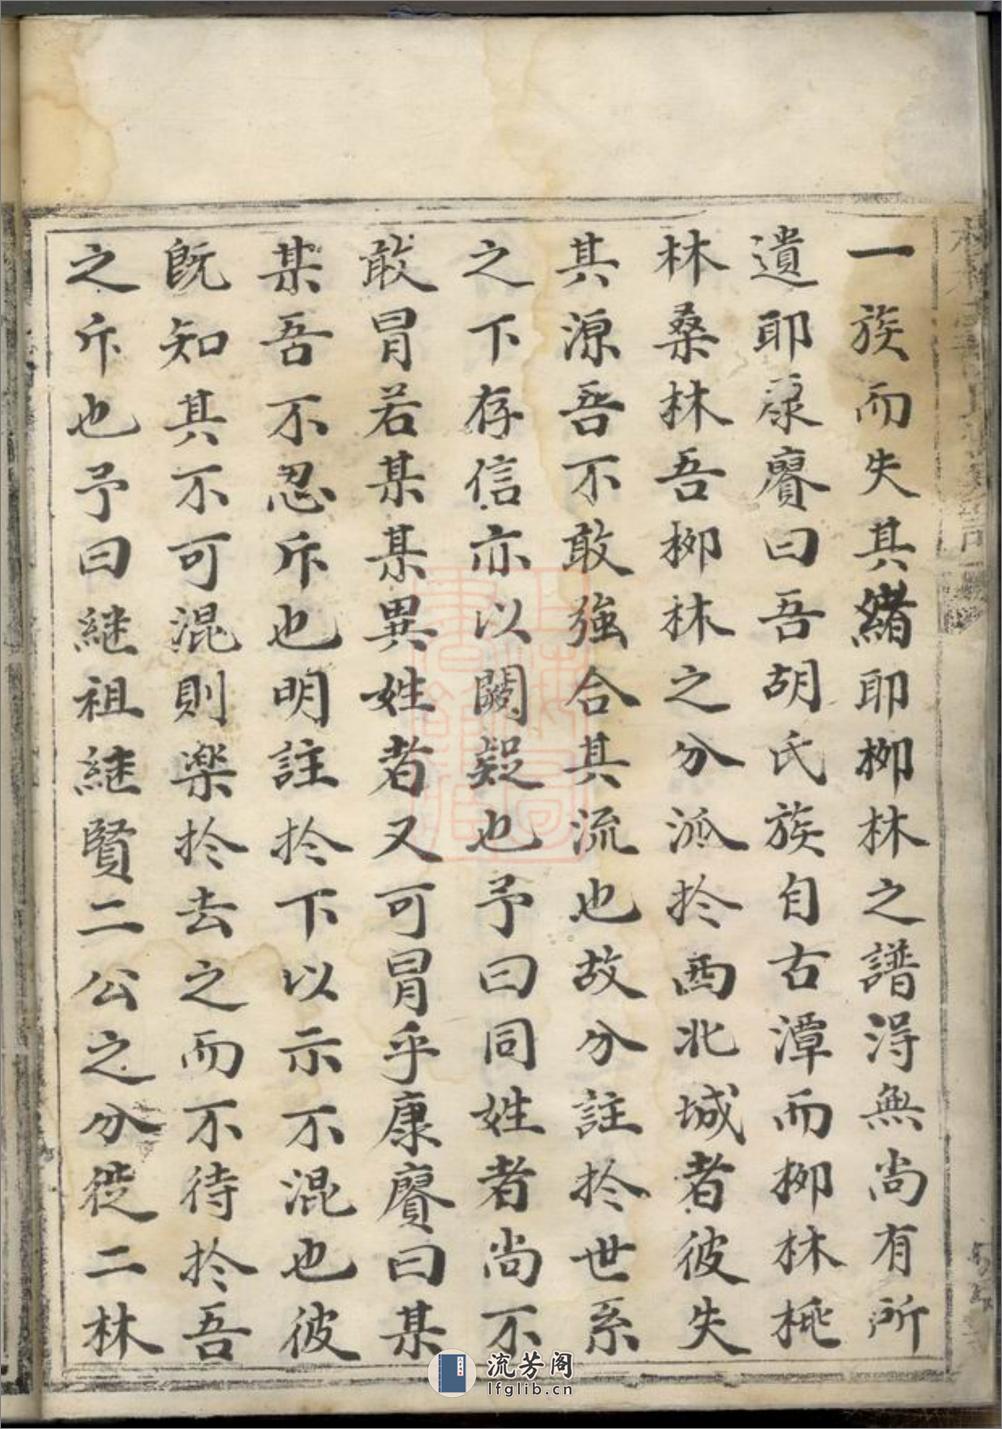 一族而失其緒耶桞林之譜淂無尚有所
遺耶康賡曰吾胡氏族自古潭而桞林桃
林桑林吾桞林之分派扵西北城者彼失
其源吾不敢強合其流也故分註扵世系
之下存信亦以闕疑也予曰同姓者尚不
敢冒若某某異姓者又可冒乎康賡曰某
某吾不忍斥也明註扵下以示不混也彼
既知其不可混則楽扵去之而不待扵吾
之斥也予曰継祖継賢二公之分徙二林
流芳阁
lfglib.cn